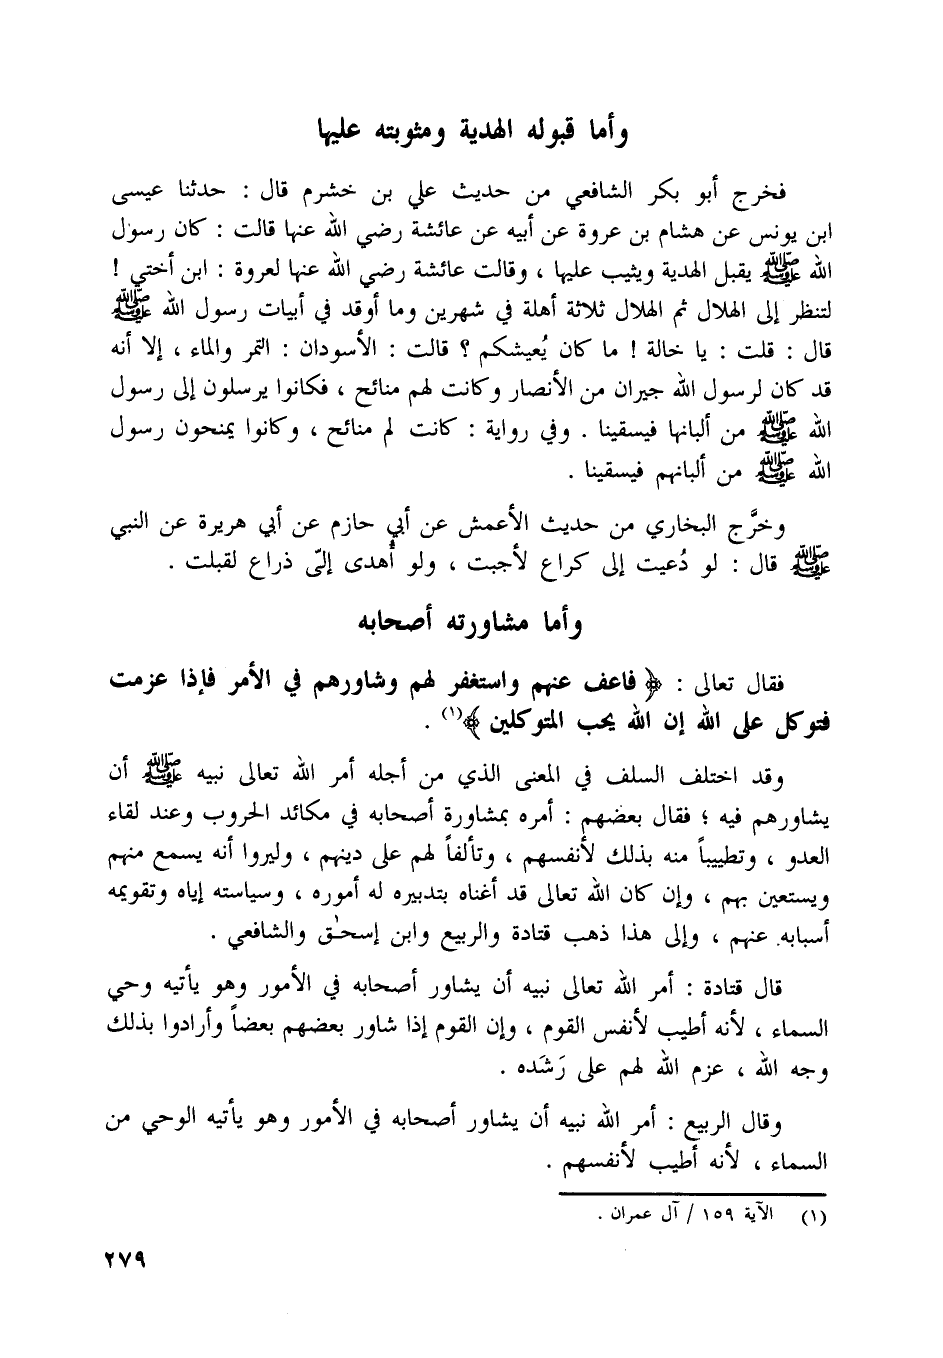 وأما قبوله الهدية ومثوبته عليها
فخرج أبو بكر الشافعي من حديث علي بن خشرم قال : حدثنا عيسى
ابن يونس عن هشام بن عروة عن أبيه عن عائشة رضي الله عنها قالت : كان رسول
الله ﷺ يقبل الهدية ويثيب عليها ، وقالت عائشة رضي الله عنها لعروة : ابن أختي !
لتنظر إلى الهلال ثم الهلال ثلاثة أهلة في شهرين وما أوقد في أبيات رسول الله ﷺ
قال : قلت : يا خالة ! ما كان يُعيشكم ؟ قالت : الأسودان : التمر والماء ، إلا أنه
قد كان لرسول الله جيران من الأنصار وكانت لهم منائح ، فكانوا يرسلون إلى رسول
الله ﷺ من ألبانها فيسقينا . وفي رواية : كانت لم منائح ، وكانوا يمنحون رسول
الله ﷺ من ألبانهم فيسقينا .
وخرَّج البخاري من حديث الأعمش عن أبي حازم عن أبي هريرة عن النبي
ﷺ قال : لو دُعيت إلى كراع لأجبت ، ولو أُهدى إلىّ ذراع لقبلت .
وأما مشاورته أصحابه
فقال تعالى : ﴿ فاعف عنهم واستغفر لهم وشاورهم في الأمر فإذا عزمت
فتوكل على الله إن الله يحب المتوكلين ﴾(١) .
وقد اختلف السلف في المعنى الذي من أجله أمر الله تعالى نبيه ﷺ أن
يشاورهم فيه ؛ فقال بعضهم : أمره بمشاورة أصحابه في مكائد الحروب وعند لقاء
العدو ، وتطييباً منه بذلك لأنفسهم ، وتألفاً لهم على دينهم ، وليروا أنه يسمع منهم
ويستعين بهم ، وإن كان الله تعالى قد أغناه بتدبيره له أموره ، وسياسته إياه وتقويمه
أسبابه عنهم ، وإلى هذا ذهب قتادة والربيع وابن إسحٰق والشافعي .
قال قتادة : أمر الله تعالى نبيه أن يشاور أصحابه في الأمور وهو يأتيه وحي
السماء ، لأنه أطيب لأنفس القوم ، وإن القوم إذا شاور بعضهم بعضاً وأرادوا بذلك
وجه الله ، عزم الله لهم على رَشَده .
وقال الربيع : أمر الله نبيه أن يشاور أصحابه في الأمور وهو يأتيه الوحي من
السماء ، لأنه أطيب لأنفسهم .
(١) الآية ١٥٩ / آل عمران .
٢٧٩